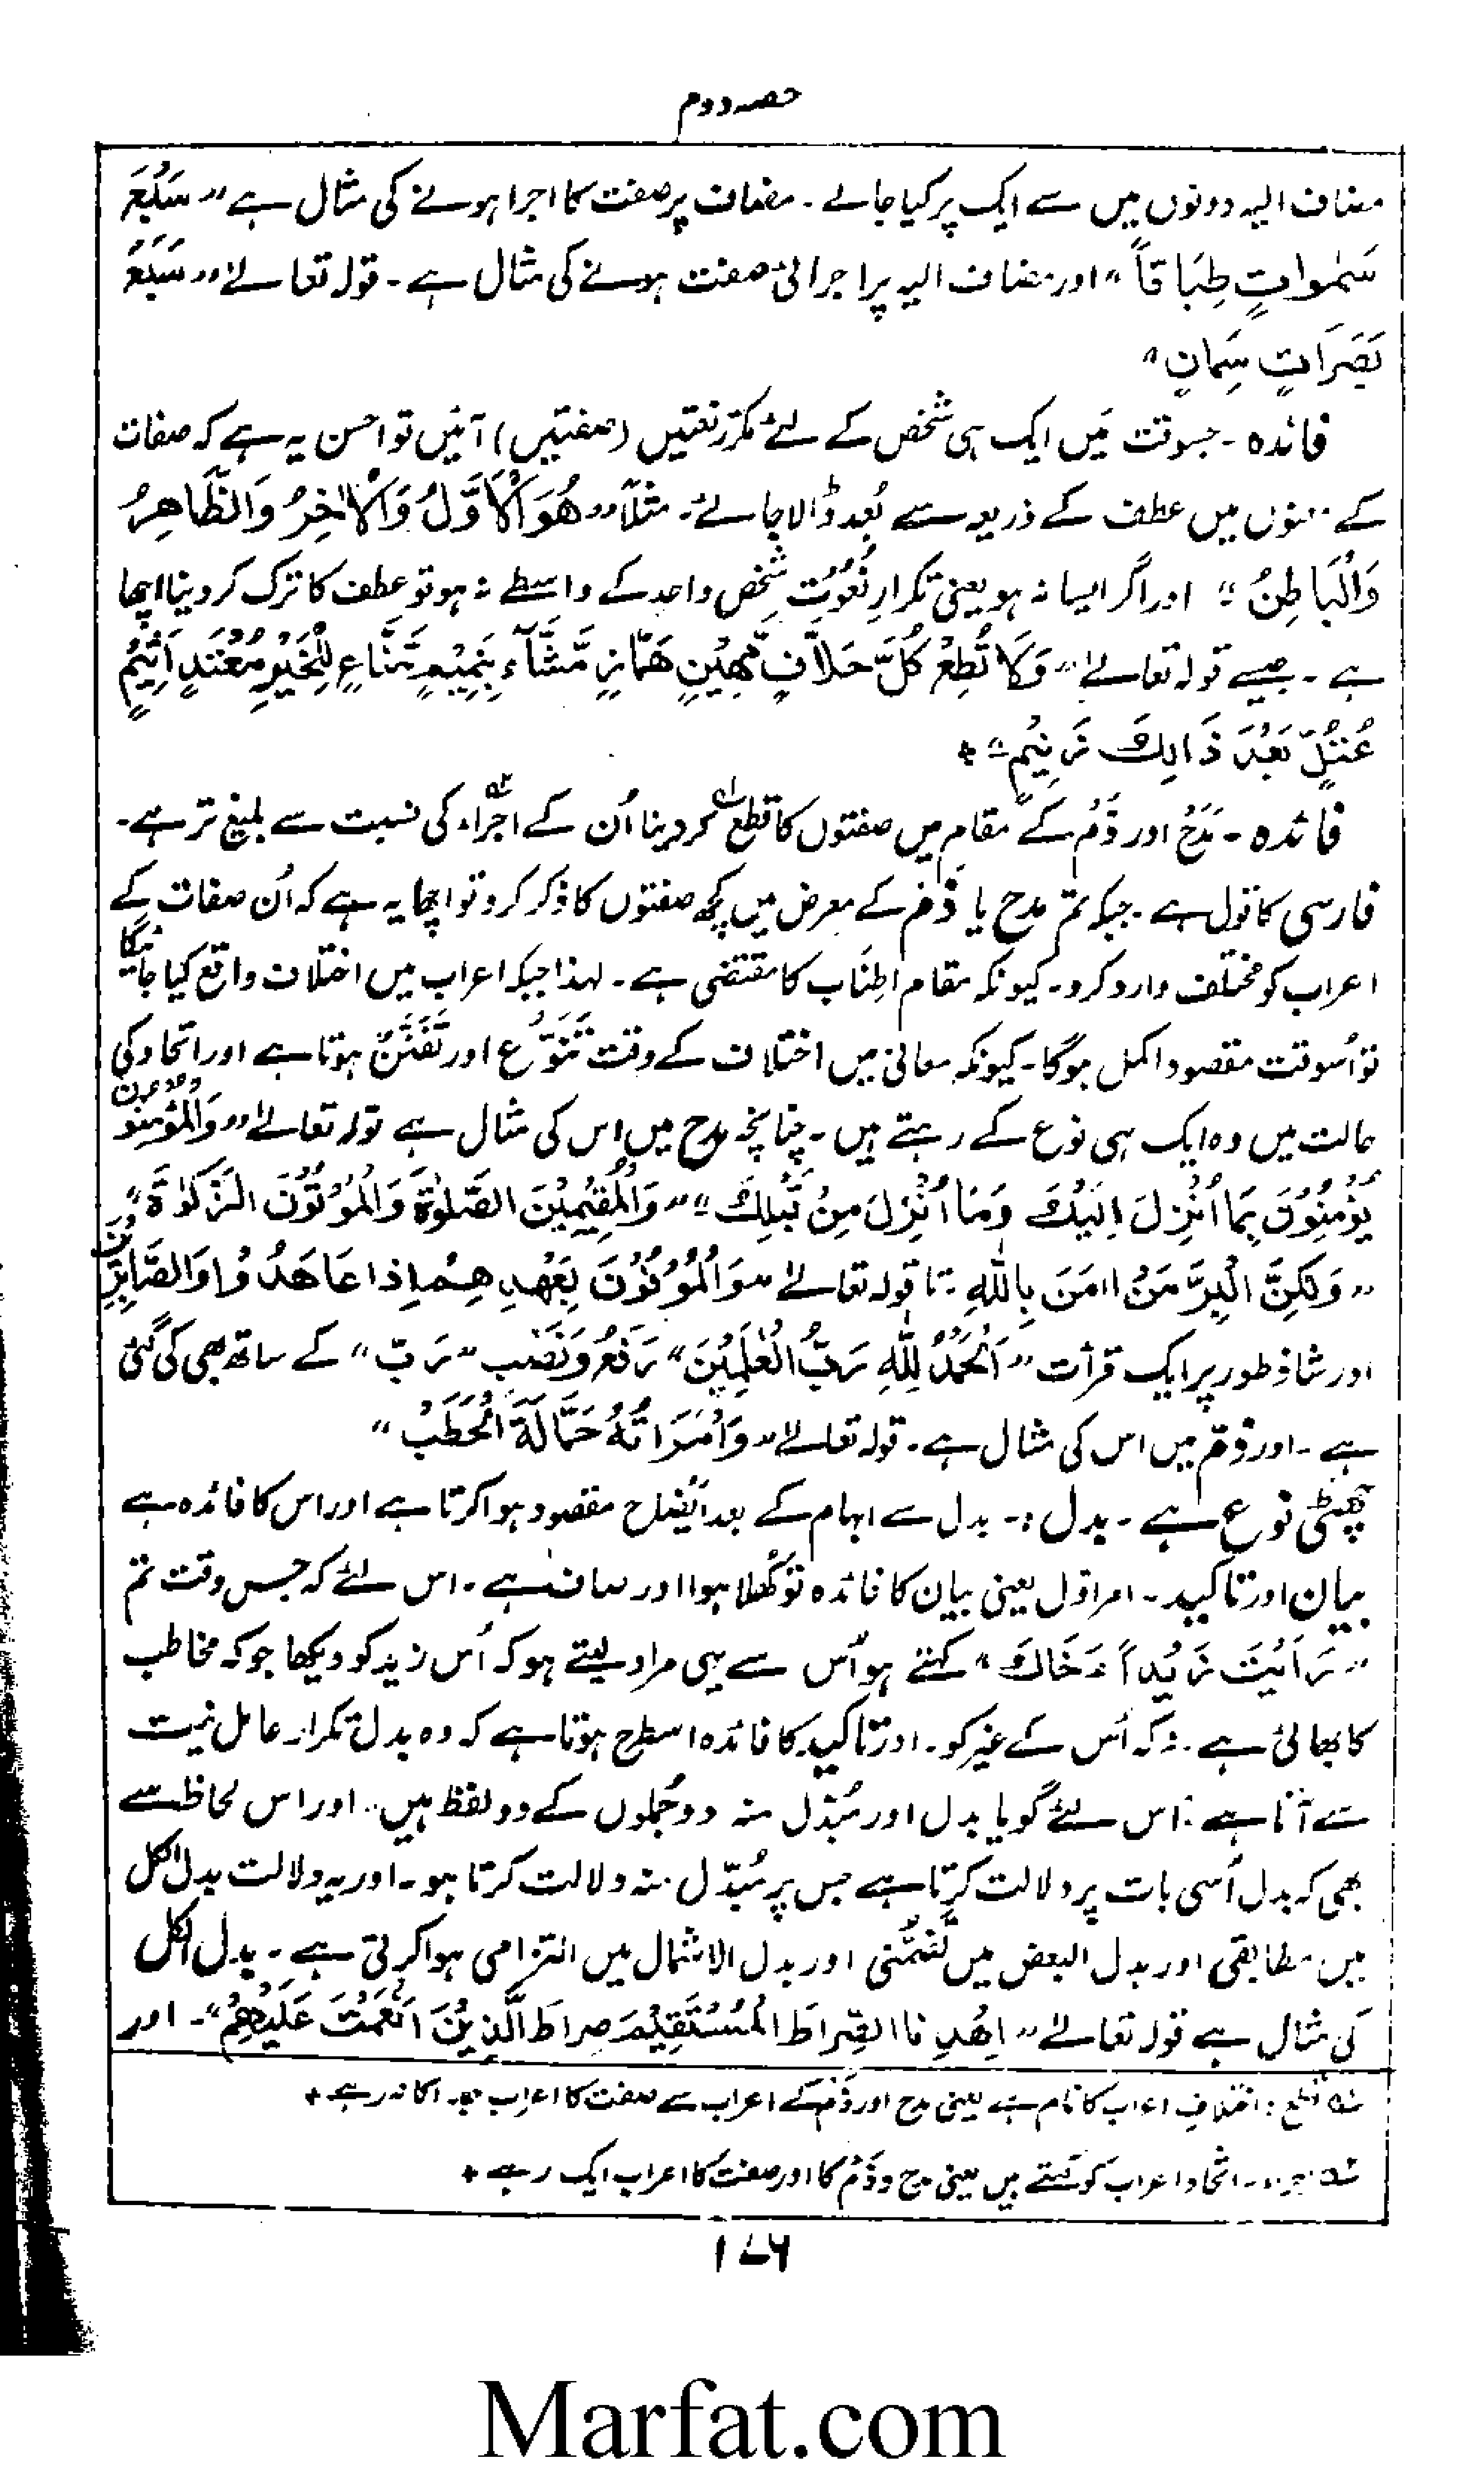 حصہ دوم
مضاف الیہ دونوں میں سے ایک پر کیا جائے ۔ مضاف پر صفت کا اجرا ہونے کی مثال ہے ״ سَبْعَ
سَمٰوَاتٍ طِبَاقاً ״ اور مضاف الیہ پر اجرائے صفت ہونے کی مثال ہے ۔ قولہ تعالےٰ ״ سَبْعَ
بَقَرَاتٍ سِمَانٍ ״
فائدہ ۔ جسوقت میں ایک ہی شخص کے لئے مکرّر نعتیں (صفتیں) آئیں تو احسن یہ ہے کہ صفات
کے معنوں میں عطف کے ذریعہ سے بُعد ڈالا جائے ۔ مثلاً ״ ھُوَ الْاَوَّلُ وَالْاٰخِرُ وَالظَّاھِرُ
وَالْبَاطِنُ ״ اور اگر ایسا نہ ہو یعنی تکرارِ نُعُوْت شخص واحد کے واسطے نہ ہو تو عطف کا ترک کر دینا اچھا
ہے ۔ جیسے قولہ تعالےٰ ״ وَلَا تُطِعْ کُلَّ حَلَّافٍ مَّھِیْنٍ ھَمَّازٍ مَّشَّآءٍ بِنَمِیْمٍ مَّنَّاعٍ لِّلْخَیْرِ مُعْتَدٍ اَثِیْمٍ
عُتُلٍّ بَعْدَ ذَالِکَ زَنِیْمٍ ״ +
فائدہ ۔ مَدْح اور ذَمْ کے مقام میں صفتوں کا قطع کر دینا اُن کے اجراء کی نسبت سے بلیغ تر ہے ۔
فارسی کا قول ہے ۔ جبکہ تم مدح یا ذَم کے معرض میں کچھ صفتوں کا ذکر کرو تو اچھا یہ ہے کہ اُن صفات کے
اعراب کو مختلف وارد کرو ۔ کیونکہ مقام اِطناب کا مقتضی ہے ۔ لہذا جبکہ اعراب میں اختلاف واقع کیا جائیگا
تو اُسوقت مقصود اکمل ہوگا ۔ کیونکہ معانی میں اختلاف کے وقت تَنَوُّع اور تَفَنُّن ہوتا ہے اور اتحاد کی
حالت میں وہ ایک ہی نوع کے رہتے ہیں ۔ چنانچہ مدح میں اس کی مثال ہے قولہ تعالےٰ ״ وَالْمُؤْمِنُوْنَ
یُؤْمِنُوْنَ بِمَا اُنْزِلَ اِلَیْکَ وَمَا اُنْزِلَ مِنْ قَبْلِکَ ״ ״ وَالْمُقِیْمِیْنَ الصَّلٰوۃَ وَالْمُؤْتُوْنَ الزَّکٰوۃَ ״
״ وَلٰکِنَّ الْبِرَّ مَنْ اٰمَنَ بِاللّٰهِ ۔ تا قولہ تعالےٰ ״ وَالْمُوْفُوْنَ بِعَهْدِ هِمْ اِذَا عَاهَدُوْا وَالصَّابِرِیْنَ
اور شاذ طور پر ایک قرأت ״ اَلْحَمْدُ لِلّٰهِ رَبُّ الْعٰلَمِیْنَ ״ رَفْع وَنَصْب ״ رَبّ ״ کے ساتھ بھی کی گئی
ہے ۔ اور ذمّ میں اس کی مثال ہے ۔ قولہ تعالےٰ ״ وَامْرَاَتُهُ حَمَّالَةَ الْحَطَبْ ״
چھٹی نوع ہے ۔ بدل :۔ بدل سے ابہام کے بعد ایضاح مقصود ہوا کرتا ہے اور اس کا فائدہ ہے
بیان اور تاکید ۔ امر اوّل یعنی بیان کا فائدہ تو کُھلا ہوا اور صاف ہے ۔ اس لئے کہ جس وقت تم
״ رَاَیْتَ زَیْداً اَخَاکَ ״ کہتے ہو اُس سے یہی مراد لیتے ہو کہ اُس زید کو دیکھا جو کہ مخاطب
کا بھائی ہے ۔ نہ کہ اُس کے غیر کو ۔ اور تاکید کا فائدہ اسطرح ہوتا ہے کہ وہ بدل تکرار عامل نیت
سے آتا ہے ۔ اس لئے گویا بدل اور مُبْدَل منہ دو جُملوں کے دو لفظ ہیں ۔ اور اس لحاظ سے
بھی کہ بدل اُسی بات پر دلالت کرتا ہے جس پر مُبدّل منہ دلالت کرتا ہو ۔ اور یہ دلالت بدل الکل
میں مطابقی اور بدل البعض میں تَضَمُّنی اور بدل الاشتمال میں التزامی ہوا کرتی ہے ۔ بدل الکل
کی مثال ہے قولہ تعالےٰ ״ اِهْدِ نَا الصِّرَاطَ الْمُسْتَقِیْمَ صِرَاطَ الَّذِیْنَ اَنْعَمْتَ عَلَیْهِمْ ״ ۔ اور
قطع : اختلافِ اعراب کا نام ہے یعنی مدح اور ذَمْ کے اعراب سے صفت کا اعراب جداگانہ رہے +
اجراء ۔ اتحاد اعراب کو کہتے ہیں یعنی مدح و ذَمْ کا اور صفت کا اعراب ایک رہے +
۱۷۶
Marfat.com